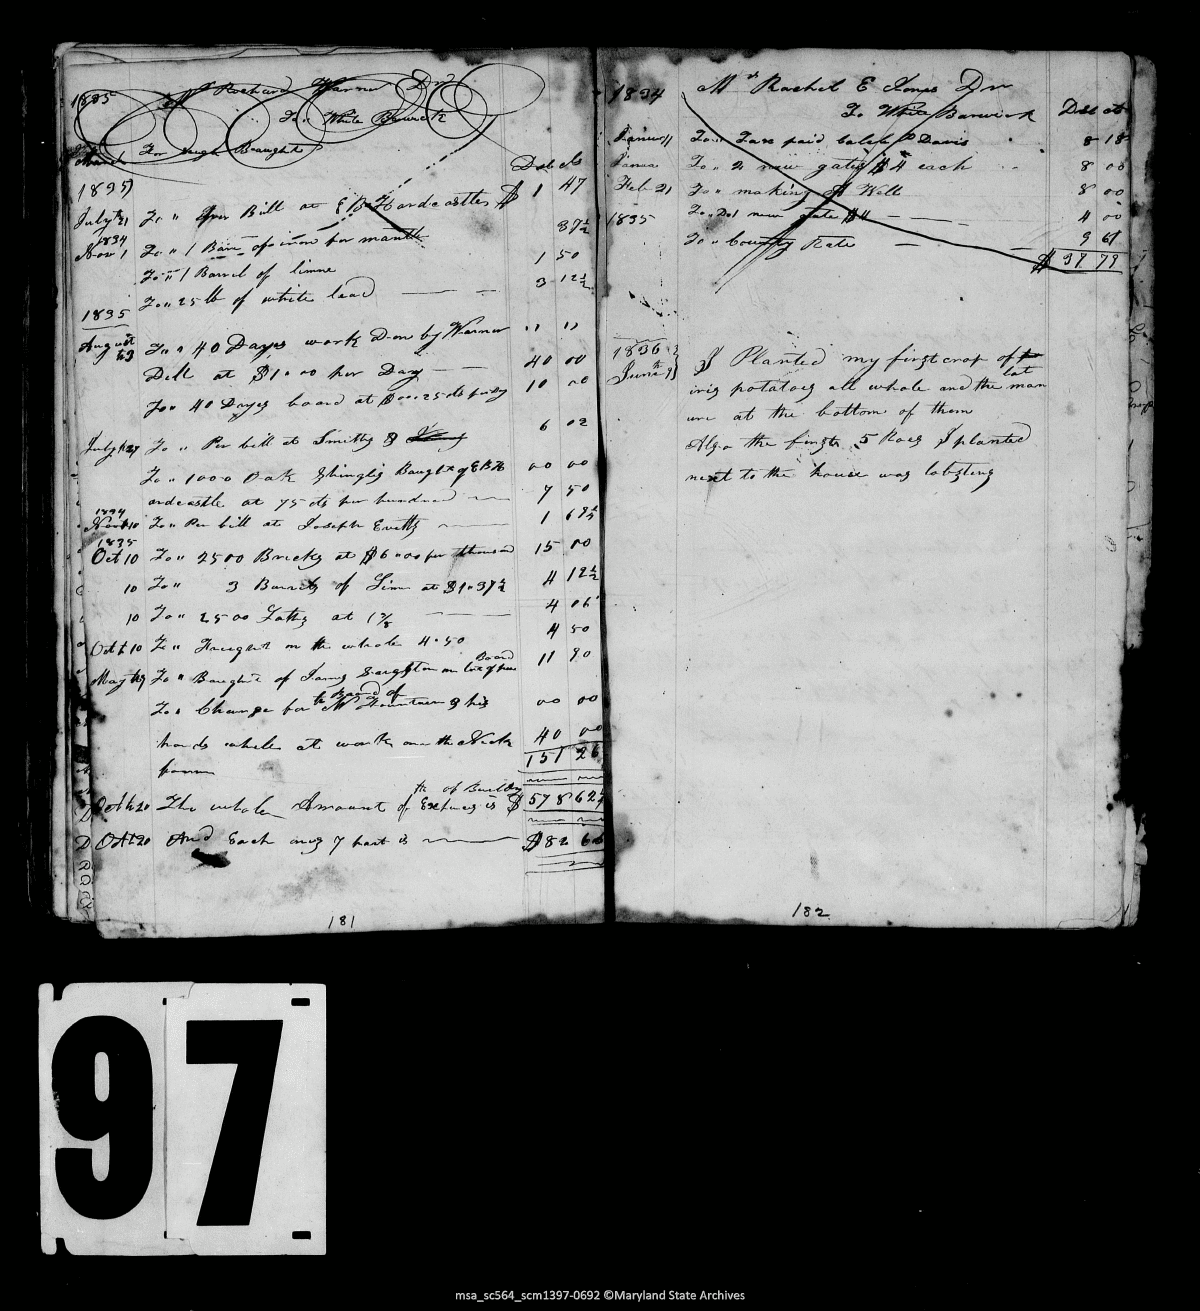 1835 Mr Richard Warner Dr
To White Barwick
March To Baught
Dols cts
1835
July 21 To " Per Bill at E B Hardcastles $ 1 47
1834
Nov 1 To " 1 Barr of for mantle 37½
To " 1 Barrel of limne 1 50
To " 25 lb of white lead 3 12½
1835
August 23 To " 40 Days work Don by Warner " "
Dell at $1"00 per Day 40 00
To " 40 Dayes board at $00"25 cts pr dy 10 00
July 27 To " Per bill at Smiths & 6 02
To " 1000 Oak Shingls Baught of E B H 00 00
ardcastle at 75 cts per hundred 7 50
1834
Nov 10 To " Per bill at Joseph Evetts 1 69½
1835
Oct 10 To " 2500 Bricks at $6"00 per thousand 15 00
10 To " 3 Barrels of Lime at $1"37½ 4 12½
10 To " 2500 Laths at 1⅝ 4 06
Oct 10 To " Fraught on the whole 4"50 4 50
May 19 To " Baught of Jams on lot of Board 11 90
To " Charge for the Board of Mr Fountain & his 00 00
hands while at work on the Neck 40 00
farm 151 26
Oct 20 The whole Amount of the Expences of Building is $ 578 62½
Oct 20 And Each ones 7 part is $ 82 66
181
1834 Mrs Rachel E Jones Dr
To White Barwick Dols cts
Januw 11 To " Tax paid Caleb P Davis 8 18
Janua To " 2 new gates $4 each 8 00
Feb 21 To " making A Well 8 00
1835 To " 1 new gate $4 4 00
To " County Rate 9 61
$ 37 79
1836
June 9 I Planted my first crop of lat
iris potatoes all whole and the man
ure at the bottom of them
Also the first 5 Roes I planted
next to the house was
182
97
msa_sc564_scm1397-0692 ©Maryland State Archives